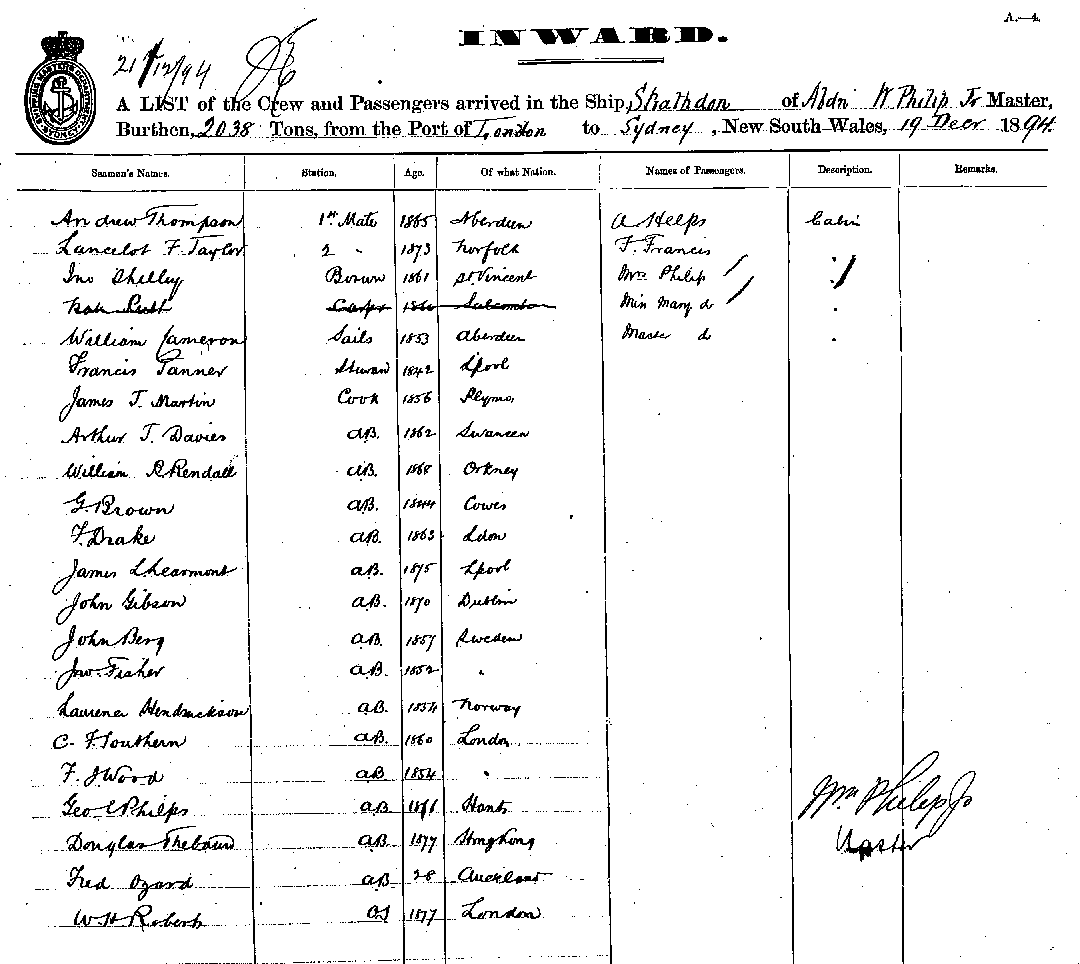 A.—4.
INWARD.
21/12/94
A LIST of the Crew and Passengers arrived in the Ship, Strathdon of Abdn W Philip Jr Master,
Burthen, 2038 Tons, from the Port of London to Sydney, New South Wales, 19 Decr 1894
Seamen's Names. Station. Age. Of what Nation. Names of Passengers. Description. Remarks.
Andrew Thompson 1st Mate 1865 Aberdeen A Helps Cabin
Lancelot F. Taylor 2 " 1873 Norfolk F. Francis
Jno Shelley Bosun 1861 St Vincent Mrs Philip "
Miss Mary do "
William Cameron Sails 1853 Aberdeen Master do "
Francis Tanner 1842 Lpool
James T. Martin Cook 1856 Plymo
Arthur T. Davies AB. 1862 Swansea
William R Rendall AB. 1868 Orkney
G. Brown AB. 1844 Cowes
F. Drake AB. 1863 Ldon
James L Learmont AB. 1875 Lpool
John Gibson AB. 1870 Dublin
John Berg AB. 1857 Sweden
Jno. Fisher AB. 1852 "
AB. 1854 Norway
C. F. Southern AB. 1860 London
F. J Wood AB 1854 "
Geo E Philps AB Hants
Wm Philip Jr
Douglas AB 1877 Hong Kong
Master
Fred Ozard AB 28 Auckland
W H Roberts OS 1877 London